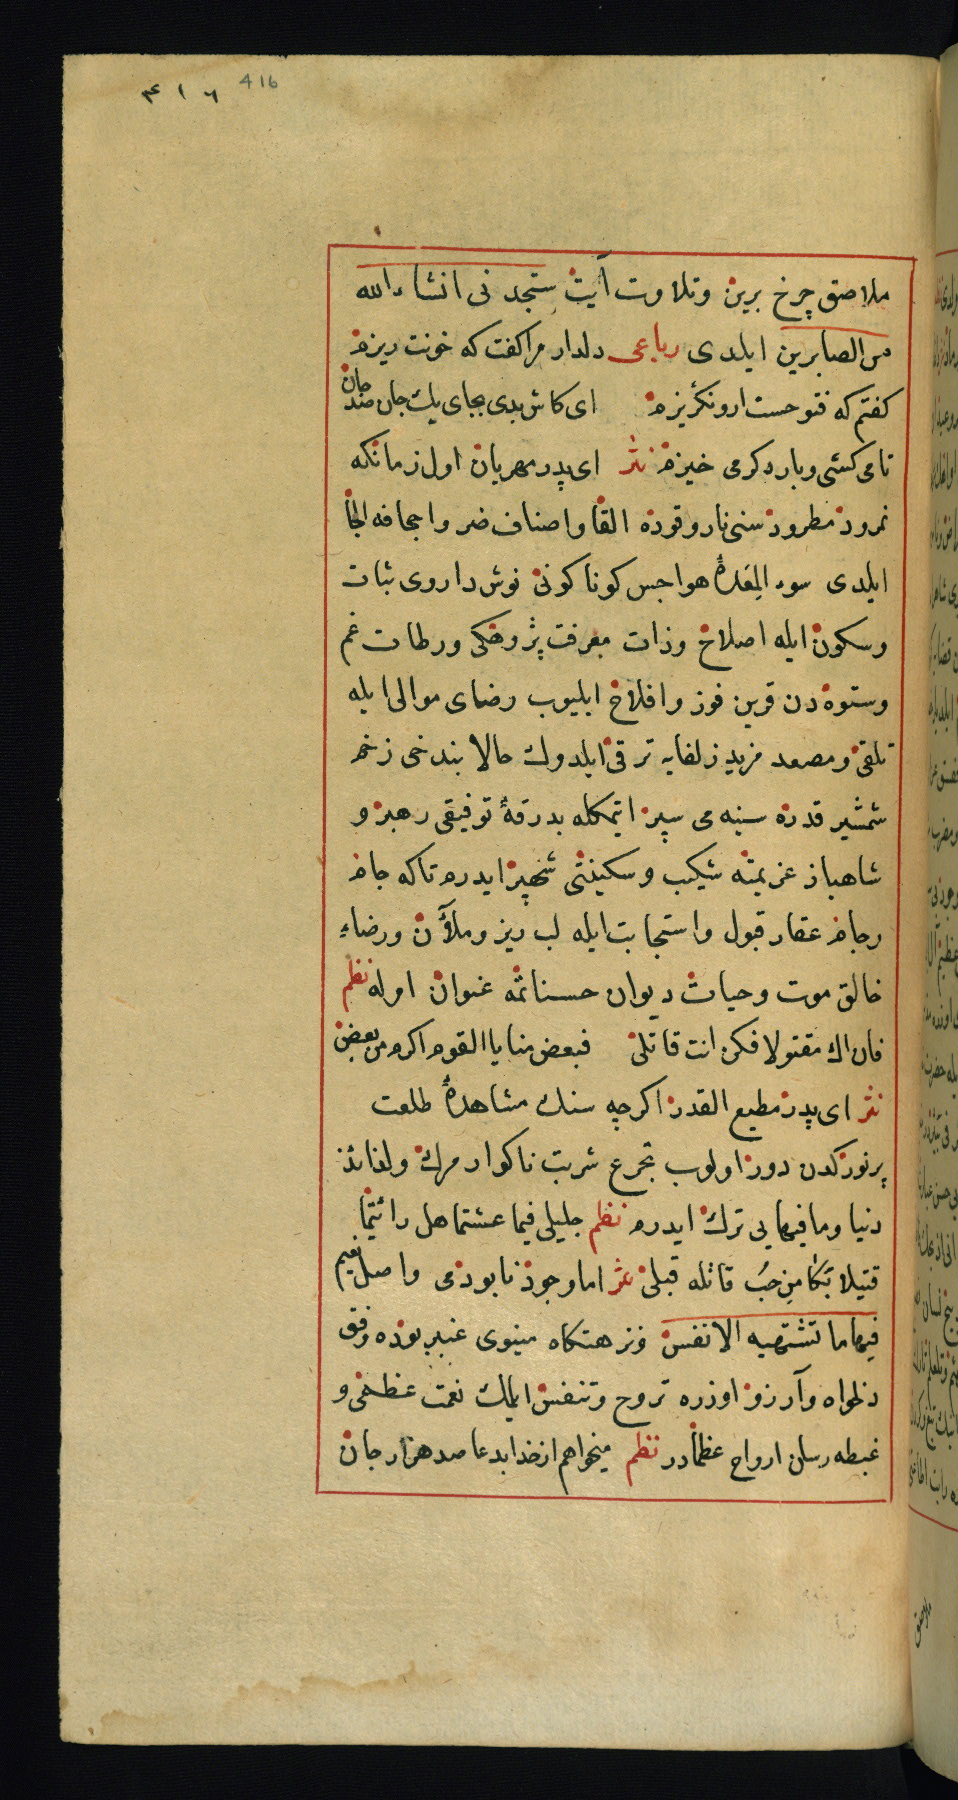 ٤١٦ 416
ملاصق چرخ برین وتلاوت آیت ستجدنی انشاءالله
من الصابرین ایلدی رباعی دلدار مرا کفت که خونت ریزم
کفتم که فتوحست ارونکریزم ای کاش بدی بجای یك جان صد جان
تا می کشتی وبار دکر می خیزم نثر ای پدر مهربان اول زمانکه
نمرود مطرود سنی نار وقوده القا واصناف ضر واجحافه الجا
ایلدی سوء المغدهٔ هواجس کوناکونی نوش داروی ثبات
وسکون ایله اصلاح وذات معرفت پژوهکی ورطات غم
وستوه دن قرین فوز وافلاح ایلیوب رضای موالی ایله
تلقی ومصعد مزید زلفایه ترقی ایلدوك حالا بند خی زخم
شمشیر قدره سینه می سپر ایتمکله بدرقهٔ توفیقی رهبر و
شاهباز عزیمته شیکب وسکینتی شهپر ایدرم تاکه جام
رجام عقار قبول واستجابت ایله لب ریز وملآن ورضاء
خالق موت وحیات دیوان حسناتمه عنوان اوله نظم
فان اك مقتولا فکن انت قاتلی فبعض منایا القوم اکرم من بعض
نثر ای پدر مطیع القدر اکرچه سنك مشاهدهٔ طلعت
پرنورکدن دور اولوب تجرع شربت ناکوار مرك ولذائذ
دنیا ومافیهایی ترك ایدرم نظم جلیلی فیما عشتما هل رائیتما
قتیلا بکا من حب قاتله قبلی نثر اما وجود نابودمی واصل نعیم
فیها ما تشتهیه الانفس ونزهتکاه مینوی عنبربوده وفق
دلخواه وآرزو اوزره تروح وتنفس ایلمك نعمت عظمی و
غبطه رسان ارواح عظما در نظم میخواهم از خدا بدعا صد هزار جان